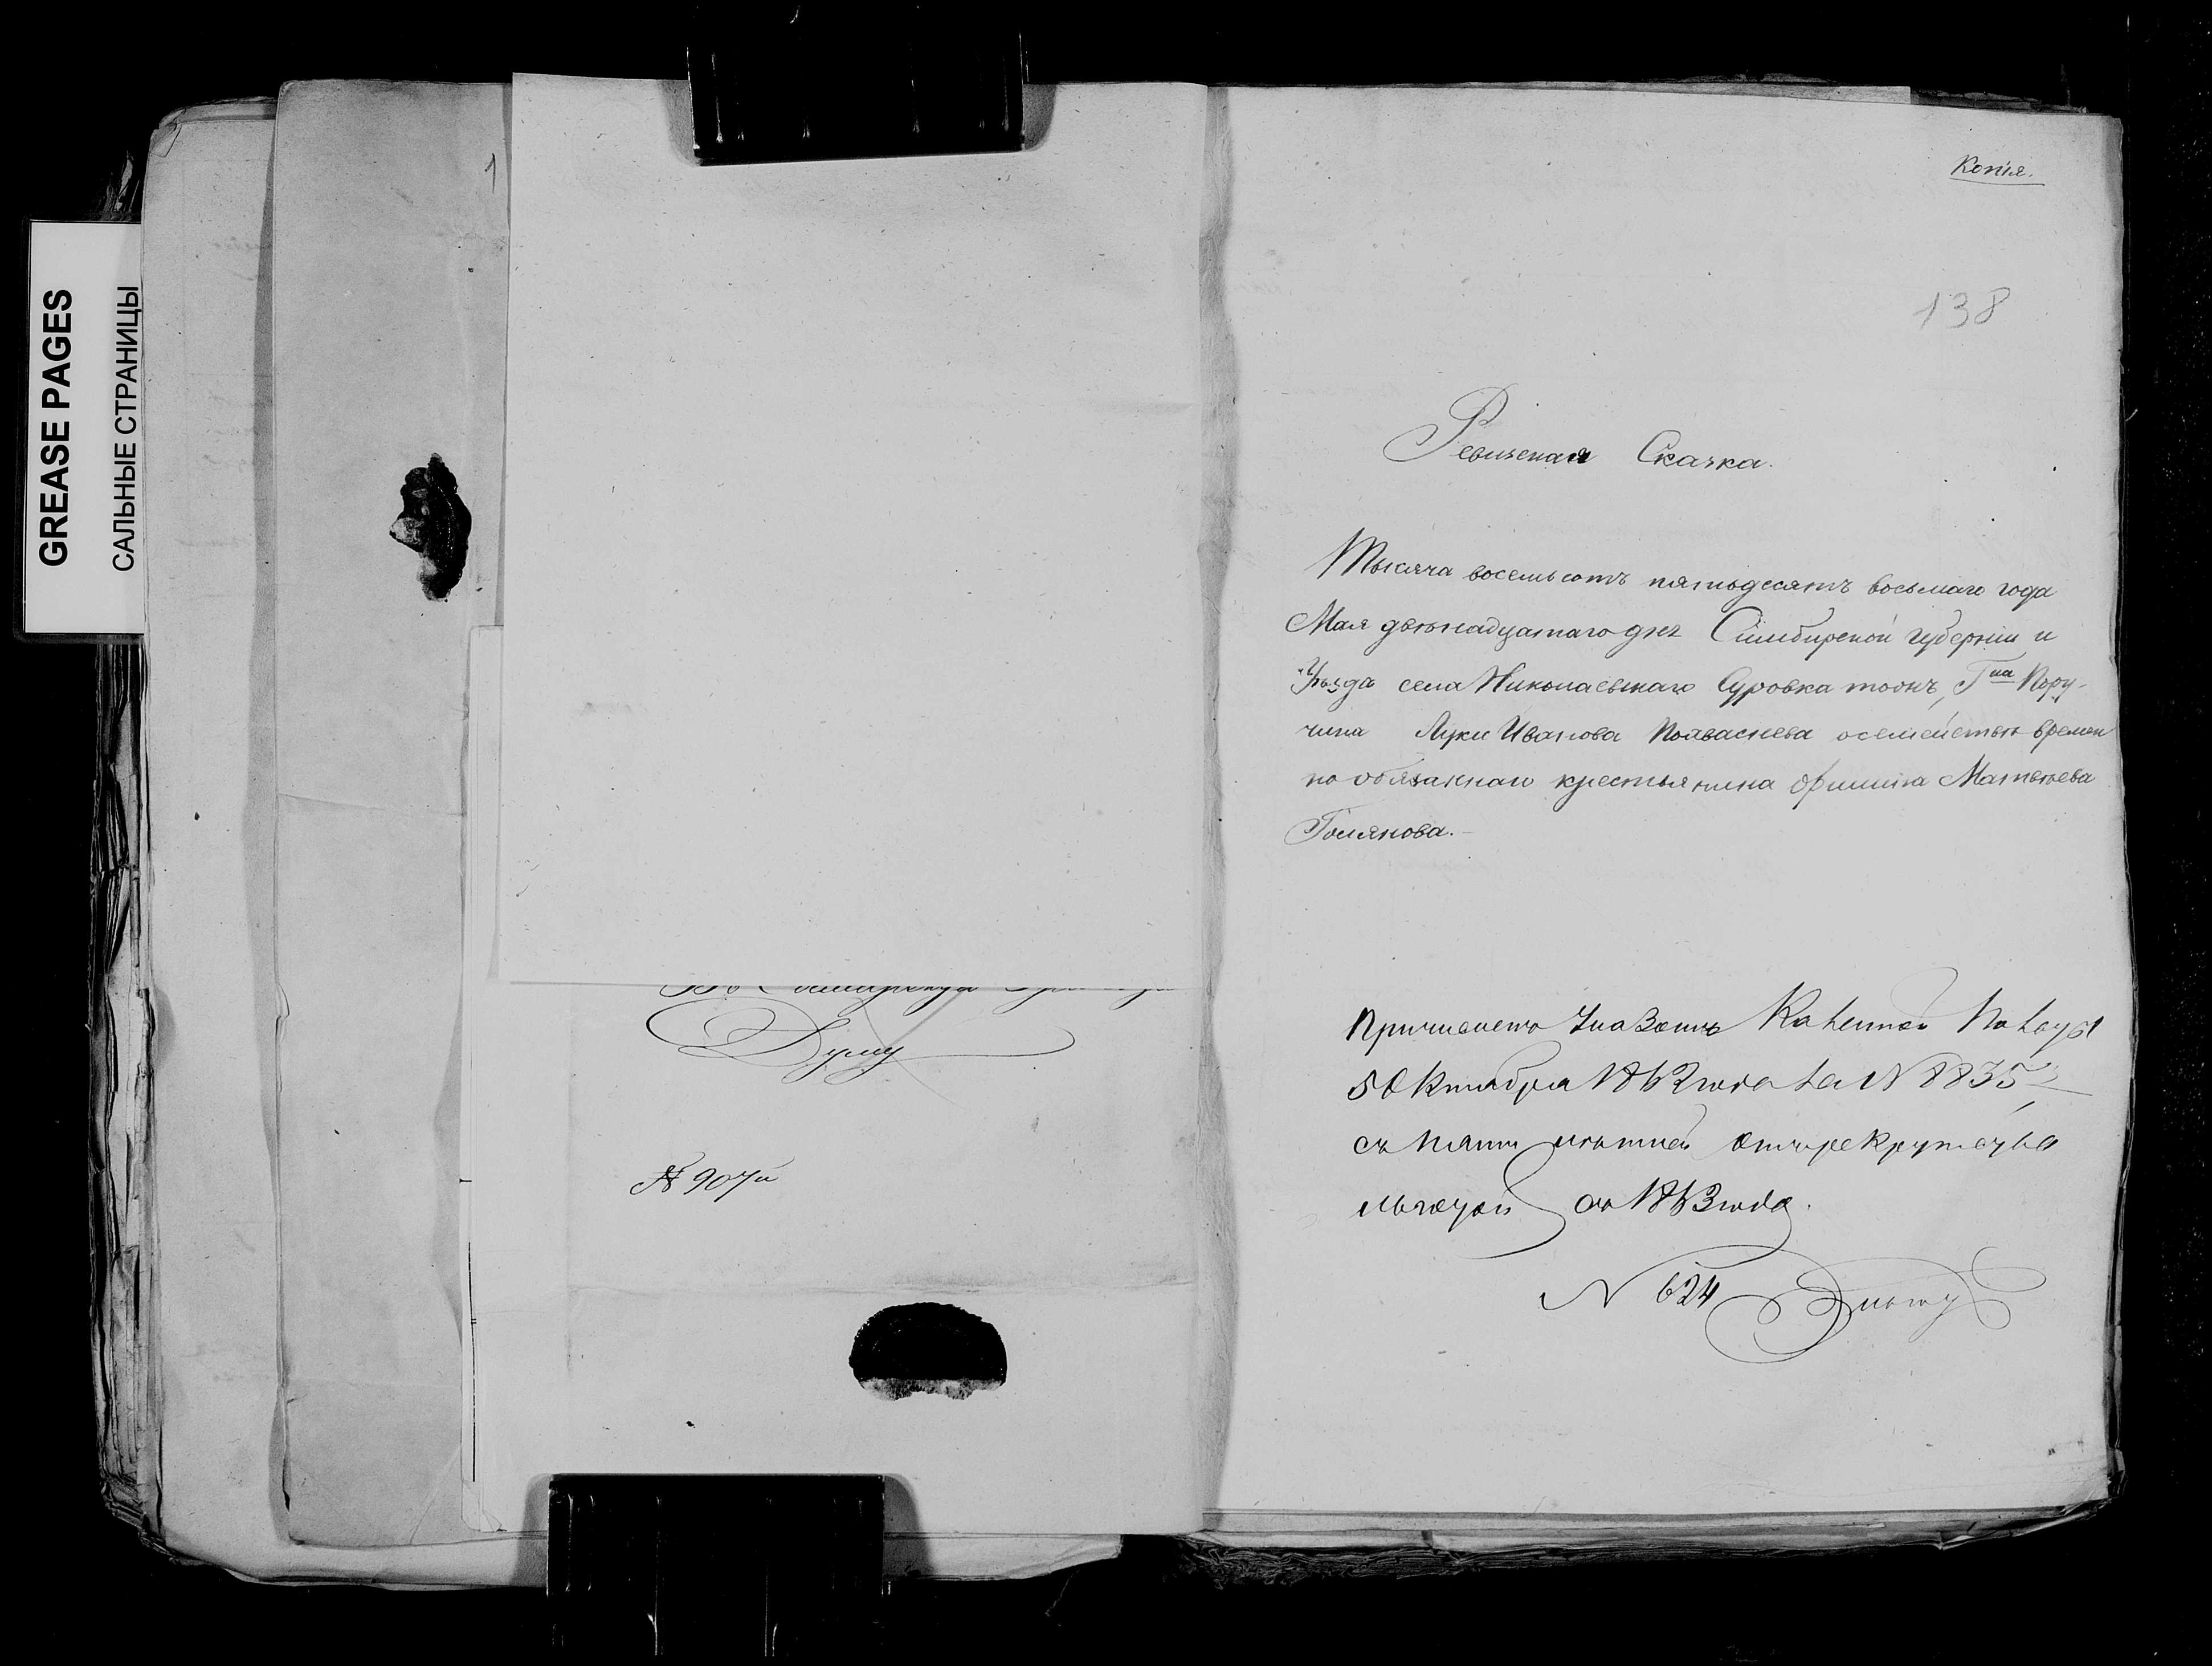 GREASE PAGES
САЛЬНЫЕ СТРАНИЦЫ
1
Думу
№ 907й
Копія.
138
Ревизская Сказка.
Тысяча восемьсотъ пятьдесятъ восьмаго года
Мая двенадцатаго дня Симбирской губерніи и
Уѣзда села Николаевскаго Суровка тожъ, Гна Пору-
чика Луки Иванова о семействѣ времен
но обязаннаго крестьянина Матвѣева
Голякова.
Причисленъ Указомъ Казенной Палаты
5 Октября 1862 года за № 8835
съ пяти лѣтней отъ рекрутства
льготой съ 1863 года.
№ 624